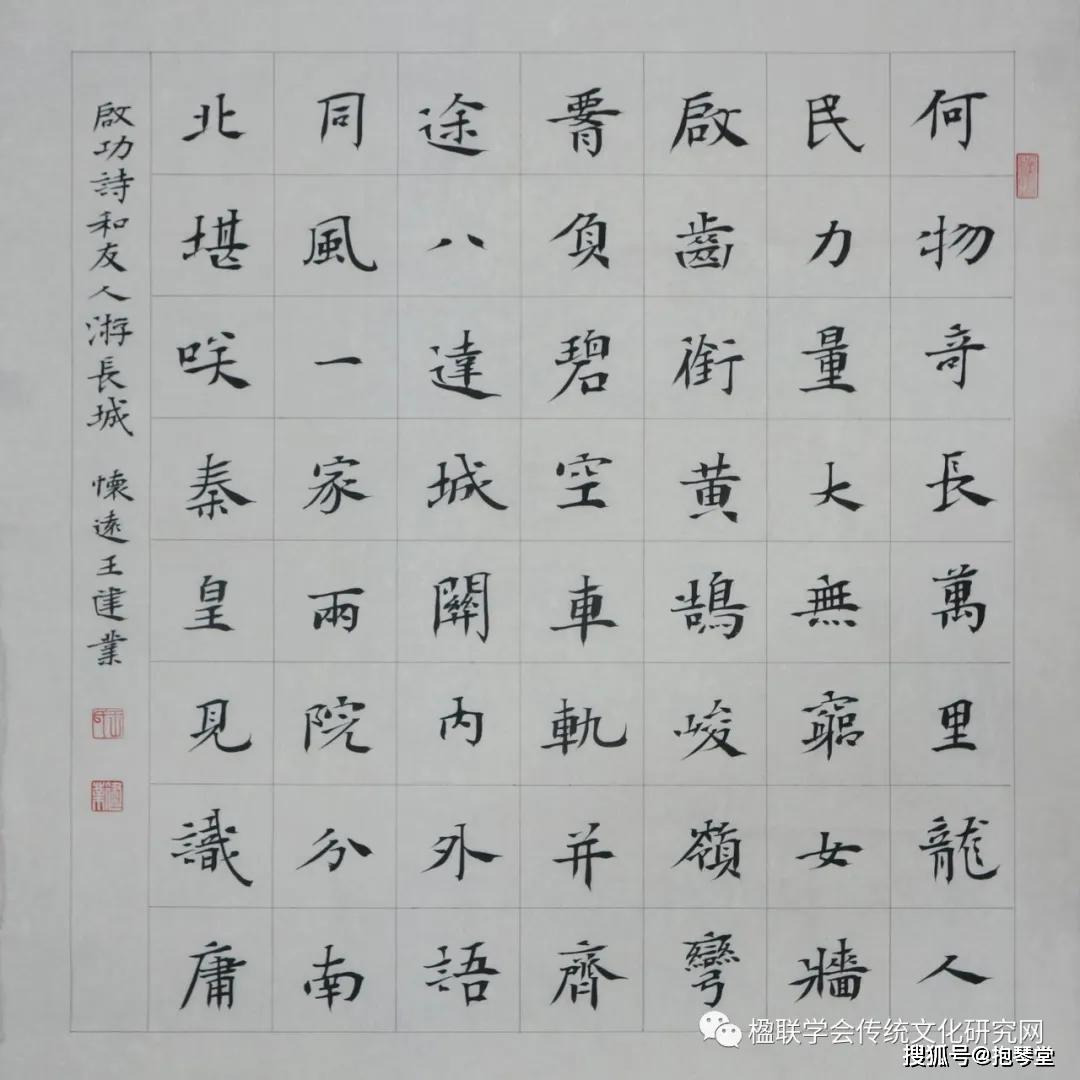 何物奇長萬里龍人
民力量大無窮女牆
啟齒銜黃鵠峻嶺彎
膂負碧空車軌并齊
途八達城關内外語
同風一家兩院分南
北堪咲秦皇見識庸
啟功詩和友人游長城 懷遠王建業
楹联学会传统文化研究网
搜狐号@抱琴堂